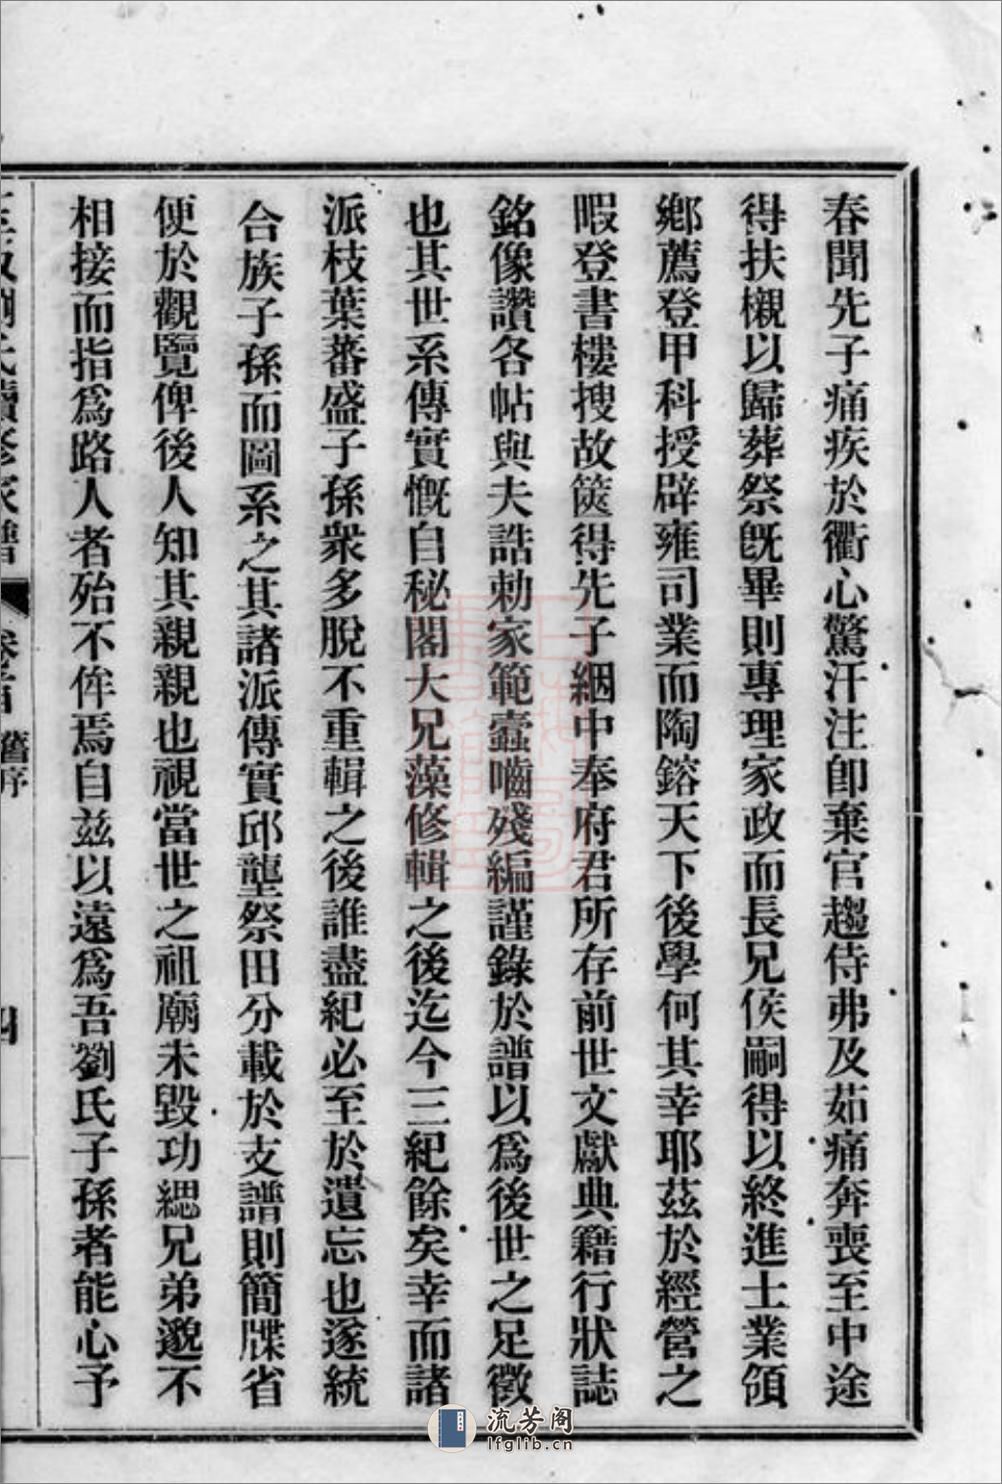 春聞先子痛疾於衢心驚汗注卽棄官趨侍弗及茹痛奔喪至中途
得扶櫬以歸葬祭旣畢則專理家政而長兄俟嗣得以終進士業領
鄉薦登甲科授辟雍司業而陶鎔天下後學何其幸耶茲於經營之
暇登書樓搜故篋得先子絪中奉府君所存前世文獻典籍行狀誌
銘像讚各帖與夫誥勅家範蠹嚙殘編謹錄於譜以爲後世之足徵
也其世系傳實慨自秘閣大兄藻修輯之後迄今三紀餘矣幸而諸
派枝葉蕃盛子孫衆多脫不重輯之後誰盡紀必至於遺忘也遂統
合族子孫而圖系之其諸派傳實邱壟祭田分載於支譜則簡牒省
便於觀覽俾後人知其親親也視當世之祖廟未毀功緦兄弟邈不
相接而指爲路人者殆不侔焉自兹以遠爲吾劉氏子孫者能心予
劉氏續修家譜 卷首 舊序 四
流芳阁
lfglib.cn